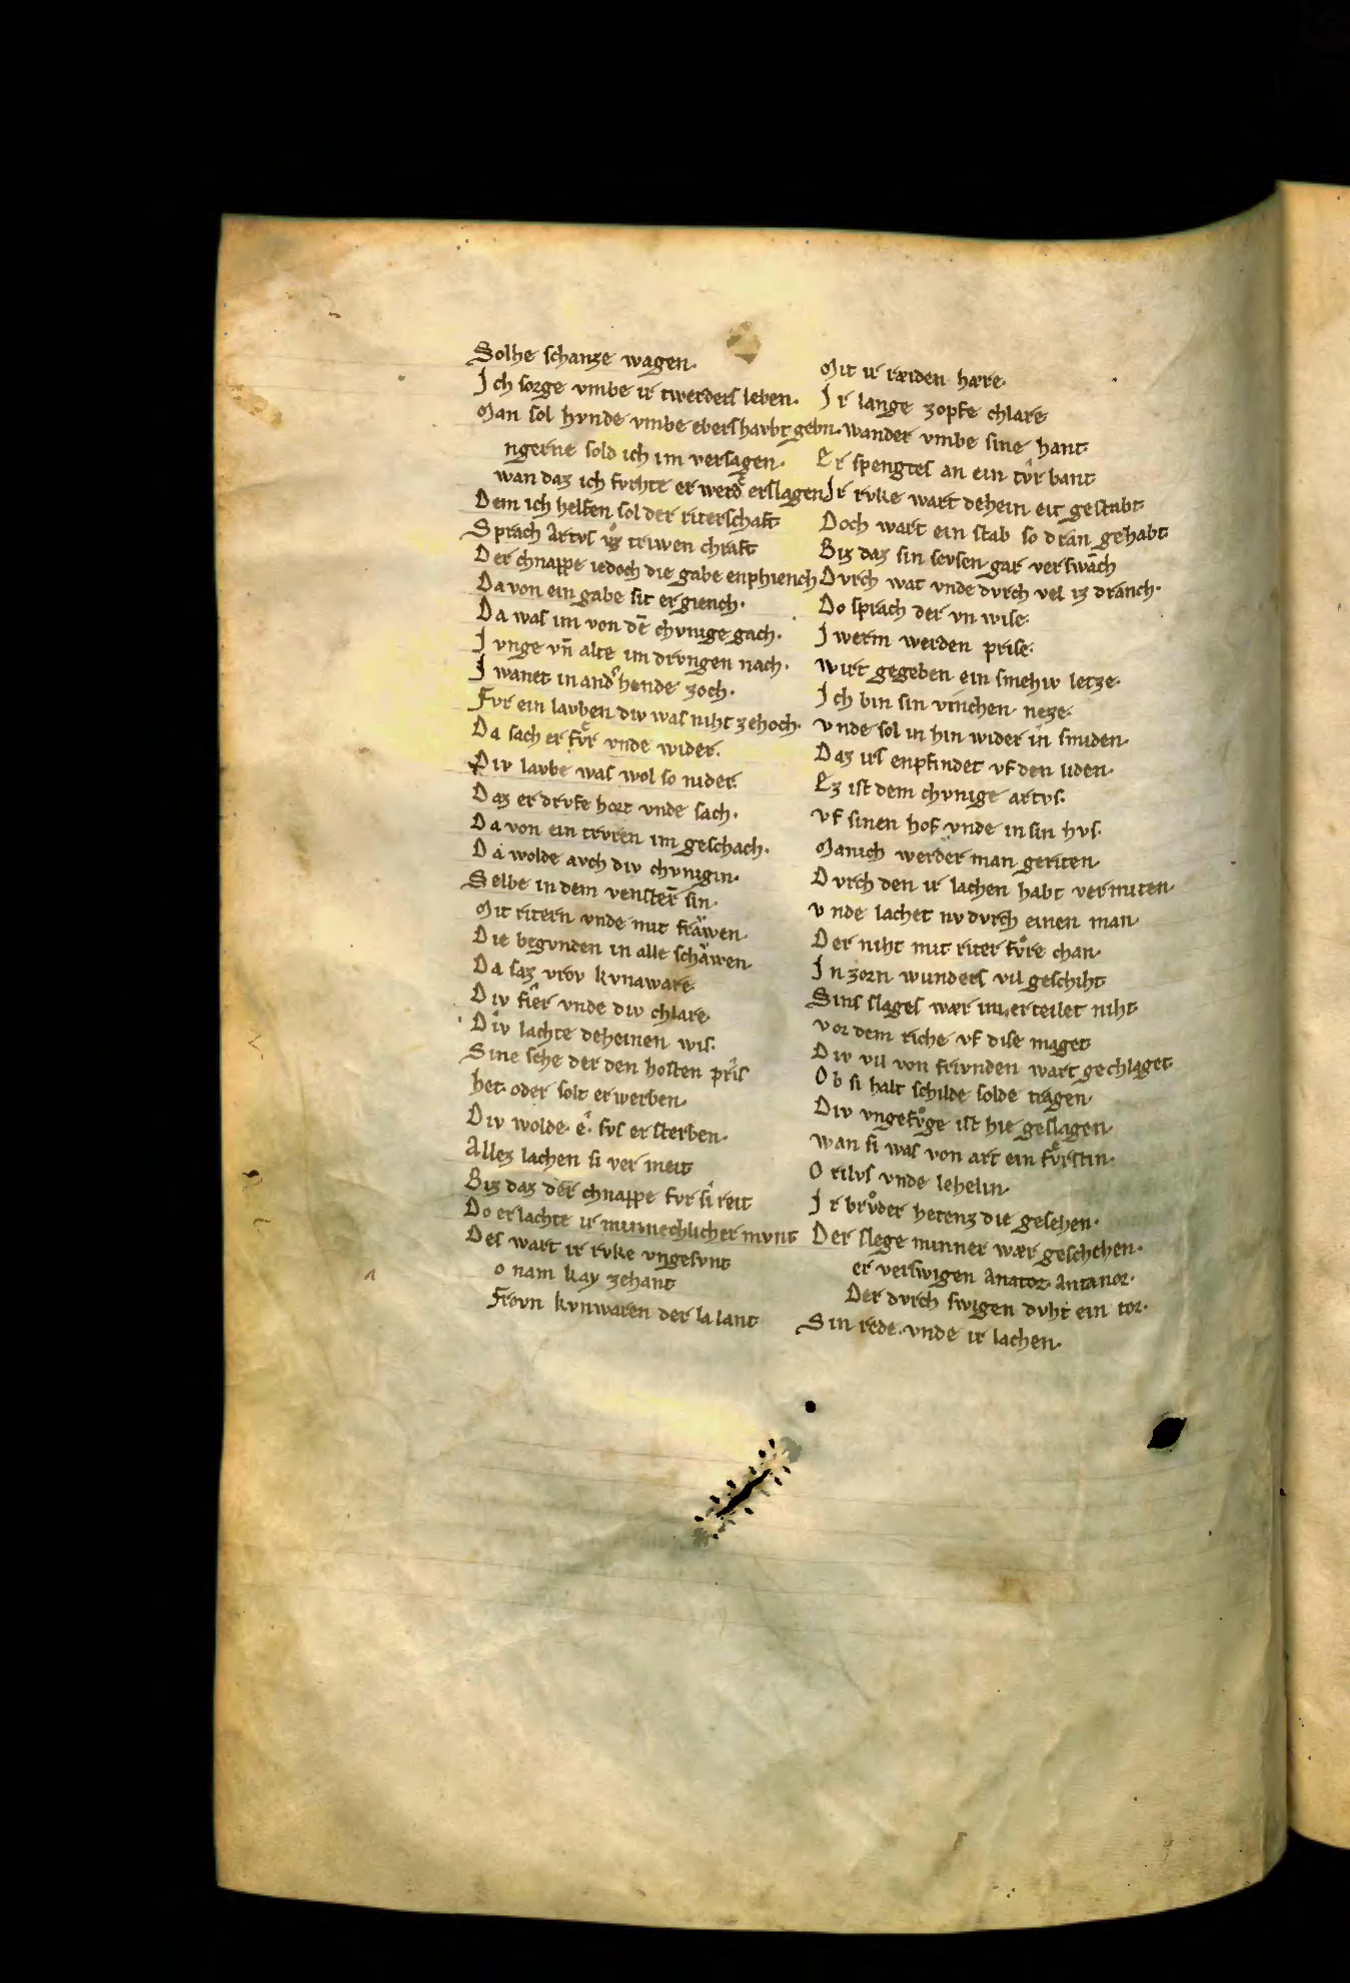 Solhe schanze wagen·
Ich sorge vmbe ir twederſ leben·
Man sol hvnde vmbe eberſ havbt gebn·
ngerne sold ich im versagen·
wan daz ich fvrhte er werdͤ erslagen
Dem ich helfen sol der riterschaft
Sprach Artvs vͦz triwen chraft
Der chnappe iedoch die gabe enphiench
Da von ein gabe sit ergiench·
Da was im von dē chvnige gach·
Jvnge vn̄ alte im drvngen nach·
Iwanet in andͤ hende zoch·
Fvr ein lavben div was niht zehoch·
Da sach er fvͤr vnde wider·
Div lavbe was wol so nider·
Daz er drvfe hort vnde sach·
Da von ein trvren im geschach·
Da wolde avch div chvnigin·
Selbe in dem venster sin·
Mit ritern vnde mit frawen·
Die begvnden in alle schawen·
Da saz vrov kvnaware
Div fier vnde div chlare·
Div lachte deheinen wis·
Sine sehe der den hosten pris
het· oder solt erwerben·
Div wolde· ê· svs ersterben·
Allez lachen si vermeit
Biz daz der chnappe fvr si reit
Do erlachte ir minnechlicher mvnt
Des wart ir rvke vngesvnt
o nam kay zehant
Frovn kvnwaren der la lant
Mit ir ræiden hære·
Ir lange zopfe chlare
wander vmbe sine hant·
Er spengtes an ein tv̂r bant
Ir rvke wart dehein eit gestabt·
Doch wart ein stab so dran gehabt·
Biz daz sin sevsen gar verswāch
Dvrch wat vnde dvrch vel iz dranch·
Do sprach der vn wise·
Iwerm werden prise·
wirt gegeben ein smehiv letze·
Ich bin sin vinchen neze·
vnde sol in hin wider in smiden·
Daz irs enpfindet vf den liden·
Ez ist dem chvnige artvs·
vf sinen hof vnde in sin hvs·
Manich werder man geriten·
Dvrch den ir lachen habt vermiten·
vnde lachet nv dvrch einen man·
Der niht mit riter fvͦre chan·
In zorn wunders vil geschiht
Sins slages wær im erteilet niht·
vor dem riche vf dise maget
Div vil von frivnden wart gechlaget·
Ob si halt schilde solde tragen·
Div vngefvͦge ist hie geslagen·
wan si was von art ein fvͤrstin·
Orilvs vnde lehelin·
Ir brvͦder hetenz die gesehen·
Der slege minner wær geschehen·
er verswigen Anator Antanor·
Der dvrch swigen dvht ein tor·
Sin rede· vnde ir lachen·